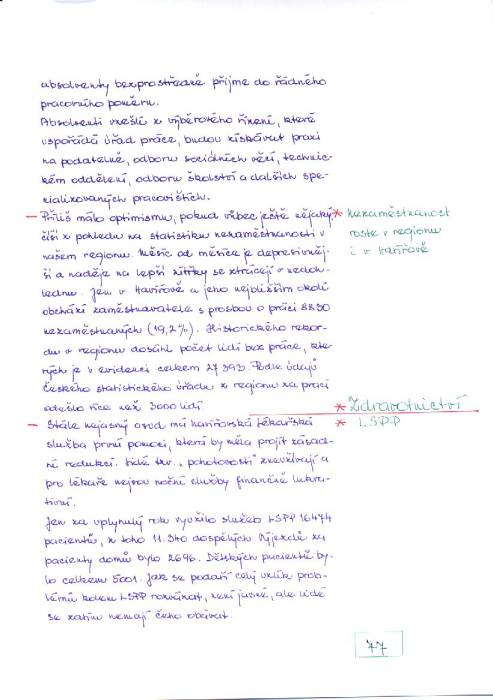 absolventy bezprostředně přijme do řádného
pracovního poměru.
Absolventi vzešlí z výběrového řízení, které
uspořádá úřad práce, budou získávat praxi
na podatelně, odboru sociálních věcí, technic-
kém oddělení, odboru školství a dalších spe-
cializovaných pracovištích.
— Příliš málo optimismu, pokud vůbec ještě nějaký
čiší z pohledu na statistiku nezaměstnanosti v
našem regionu. Měsíc od měsíce je depresivněj-
ší a naděje na lepší zítřky se ztrácejí v nedoh-
lednu. Jen v Havířově a jeho nejbližším okolí
obchází zaměstnavatele s prosbou o práci 8890
nezaměstnaných (19,2%). Historického rekor-
du v regionu dosáhl počet lidí bez práce, kte-
rých je v evidenci celkem 27393. Podle údajů
Českého statistického úřadu z regionu za prací
odešlo více než 3000 lidí
— Stále nejasný osud má havířovská lékařská
služba první pomoci, která by měla projít zásad-
ní redukcí. Lidé tzv. "pohotovosti" zneužívají a
pro lékaře nejsou noční služby finančně lukra-
tivní.
Jen za uplynulý rok využilo služeb LSPP 16474
pacientů, z toho 11.340 dospělých. Výjezdů za
pacienty domů bylo 2696. Dětských pacientů by-
lo celkem 5001. Jak se podaří celý uzlík prob-
lémů kolem LSPP rozvázat, není jasné, ale lidé
se zatím nemají čeho obávat.
* Nezaměstnanost
roste v regionu
i v Havířově
* Zdravotnictví
* LSPP
77